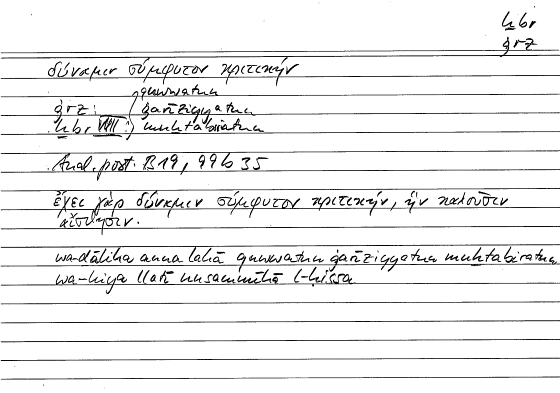 ḫbr
ġrz
δύναμιν σύμφυτον κριτικήν
quwwatun
ġrz: ġarīziyyatun
ḫbr VIII: muḫtabiratun
Anal. post. B 19, 99b 35
ἔχει γὰρ δύναμιν σύμφυτον κριτικήν, ἣν καλοῦσιν
αἴσθησιν.
wa-ḏālika anna lahā quwwatun ġarīziyyatun muḫtabiratun
wa-hiya llatī nusammīhā l-ḥissa